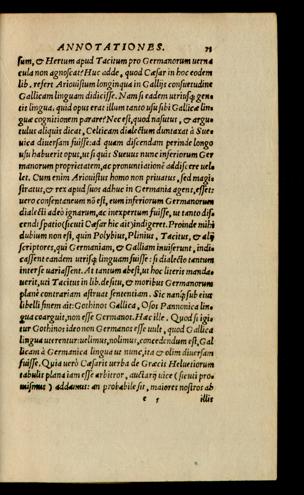 ANNOTATIONES. 73
sum, & Hertum apud Tacitum pro Germanorum uerna
cula non agnoscat? Huc adde, quod Cæsar in hoc eodem
lib. refert Ariouistum longinqua in Gallijs consuetudine
Gallicam linguam didicisse. Nam si eadem utriusq; gen-
tis lingua, quid opus erat illum tanto usu sibi Gallicæ lin-
guæ cognitionem parare? Nec est, quod nasutus, & argu-
tulus aliquis dicat, Celticam dialectum duntaxat à Sue-
uica diuersam fuisse: ad quam discendam perinde longo
usu habuerit opus, ut si quis Sueuus nunc inferiorum Ger
manorum proprietatem, ac pronunciationē addiscere uel-
let. Cum enim Ariouistus homo non priuatus, sed magi-
stratus, & rex apud suos adhuc in Germania agens, esset:
uero consentaneum nō est, eum inferiorum Germanorum
dialecti adeò ignarum, ac inexpertum fuisse, ut tanto dis-
cendi spatio (sicuti Cæsar hic ait) indigeret. Proinde mihi
dubium non est, quin Polybius, Plinius, Tacitus, & alij
scriptores, qui Germaniam, & Galliam inuiserunt, indi-
cassent eandem utriusq; linguam fuisse: si dialecto tantum
inter se uariassent. At tantum abest, ut hoc literis manda-
uerit, uti Tacitus in lib. de situ, & moribus Germanorum
planè contrariam astruat sententiam. Sic nanq; sub eius
libelli finem ait: Gothinos Gallica, Osos Pannonica lin-
gua coarguit, non esse Germanos. Hac ille. Quod si igi-
tur Gothinos ideo non Germanos esse uult, quod Gallica
lingua uterentur: uelimus, nolimus, concedendum est, Gal
licam à Germanica lingua ut nunc, ita & olim diuersam
fuisse. Quia uerò Cæsaris uerba de Græcis Heluetiorum
tabulis plana iam esse arbitror, auctarij uice (sicuti pro-
misimus) addamus: an probabile sit, maiores nostros ab
e 5 illis